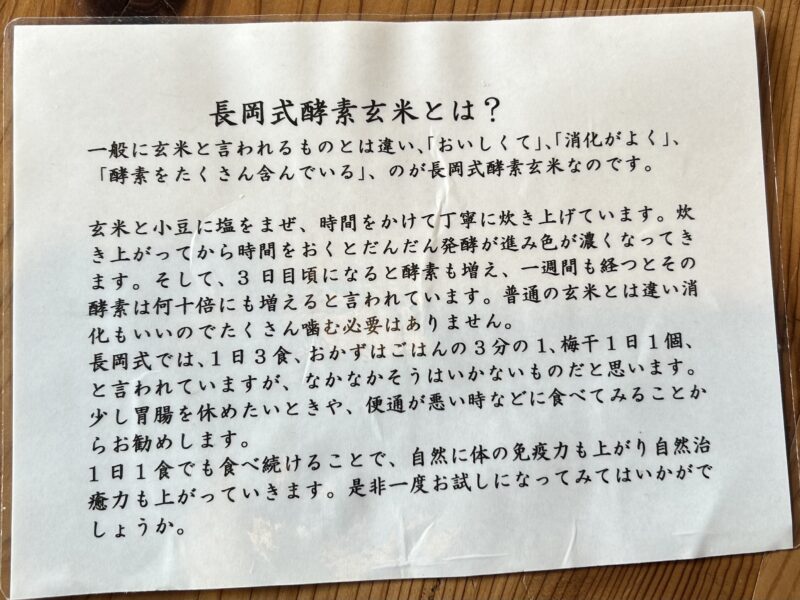 長岡式酵素玄米とは？
一般に玄米と言われるものとは違い､｢おいしくて｣､｢消化がよく｣、
「酵素をたくさん含んでいる」、のが長岡式酵素玄米なのです。
玄米と小豆に塩をまぜ、時間をかけて丁寧に炊き上げています。炊
き上がってから時間をおくとだんだん発酵が進み色が濃くなってき
ます。そして、３日目頃になると酵素も増え、一週間も経つとその
酵素は何十倍にも増えると言われています。普通の玄米とは違い消
化もいいのでたくさん噛む必要はありません。
長岡式では､１日３食､おかずはごはんの３分の１､梅干１日１個、
と言われていますが、なかなかそうはいかないものだと思います。
少し胃腸を休めたいときや、便通が悪い時などに食べてみることか
らお勧めします。
１日１食でも食べ続けることで、自然に体の免疫力も上がり自然治
癒力も上がっていきます。是非一度お試しになってみてはいかがで
しょうか。